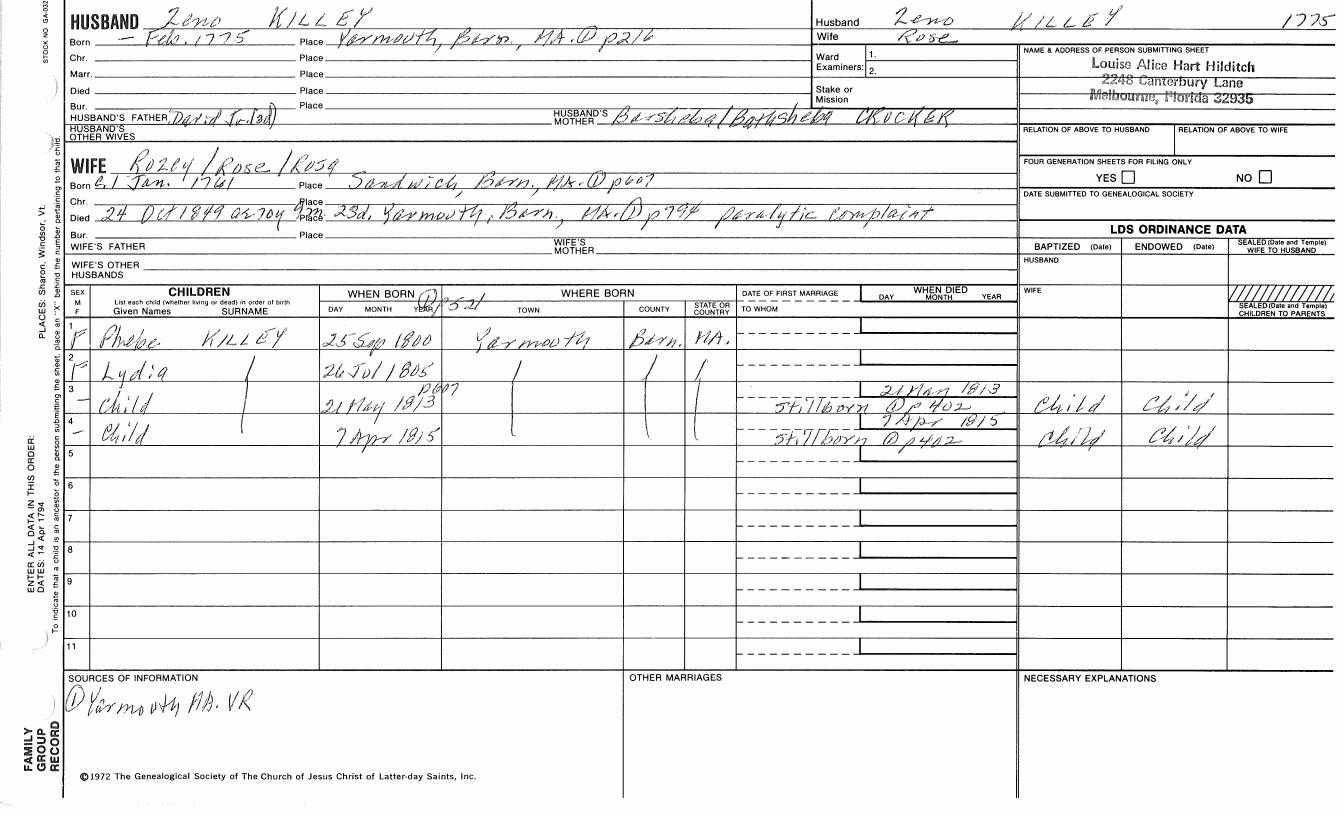 STOCK NO GA-032
HUSBAND Zeno KILLEY
Born - Feb. 1775 Place Yarmouth, Barn, MA. ① p216
Chr. Place
Marr. Place
Died Place
Bur. Place
HUSBAND'S FATHER David Jr. (3d) HUSBAND'S MOTHER Barsheba/Bathsheba CROCKER
HUSBAND'S OTHER WIVES
Husband Zeno KILLEY 1775
Wife Rose
Ward Examiners: 1.
2.
Stake or Mission
NAME & ADDRESS OF PERSON SUBMITTING SHEET
Louise Alice Hart Hilditch
2248 Canterbury Lane
Melbourne, Florida 32935
RELATION OF ABOVE TO HUSBAND RELATION OF ABOVE TO WIFE
FOUR GENERATION SHEETS FOR FILING ONLY
YES NO
DATE SUBMITTED TO GENEALOGICAL SOCIETY
WIFE Rozey/Rose/Rosa
Born c. 1 Jan. 1761 Place Sandwich, Barn., MA. ① p607
Chr. Place
Died 24 Oct 1849 ae 70y 9m 23d, Place Yarmouth, Barn., MA. ① p794 paralytic complaint
Bur. Place
WIFE'S FATHER WIFE'S MOTHER
WIFE'S OTHER HUSBANDS
LDS ORDINANCE DATA
BAPTIZED (Date) ENDOWED (Date) SEALED (Date and Temple) WIFE TO HUSBAND
HUSBAND
WIFE
SEALED (Date and Temple) CHILDREN TO PARENTS
SEX M F CHILDREN WHEN BORN ① p521 WHERE BORN DATE OF FIRST MARRIAGE WHEN DIED
List each child (whether living or dead) in order of birth
Given Names SURNAME DAY MONTH YEAR TOWN COUNTY STATE OR COUNTRY TO WHOM DAY MONTH YEAR
1 F Phebe KILLEY 25 Sep 1800 Yarmouth Barn. MA.
2 F Lydia 26 Jul 1805
3 p607 21 May 1813
- Child 21 May 1813 stillborn ① p402 Child Child
4 7 Apr 1815
- Child 7 Apr 1815 stillborn ① p402 Child Child
5
6
7
8
9
10
11
SOURCES OF INFORMATION OTHER MARRIAGES NECESSARY EXPLANATIONS
① Yarmouth MA. VR
©1972 The Genealogical Society of The Church of Jesus Christ of Latter-day Saints, Inc.
FAMILY GROUP RECORD
ENTER ALL DATA IN THIS ORDER:
DATES: 14 Apr 1794
PLACES: Sharon, Windsor, Vt.
To indicate that a child is an ancestor of the person submitting the sheet, place an "X" behind the number pertaining to that child.